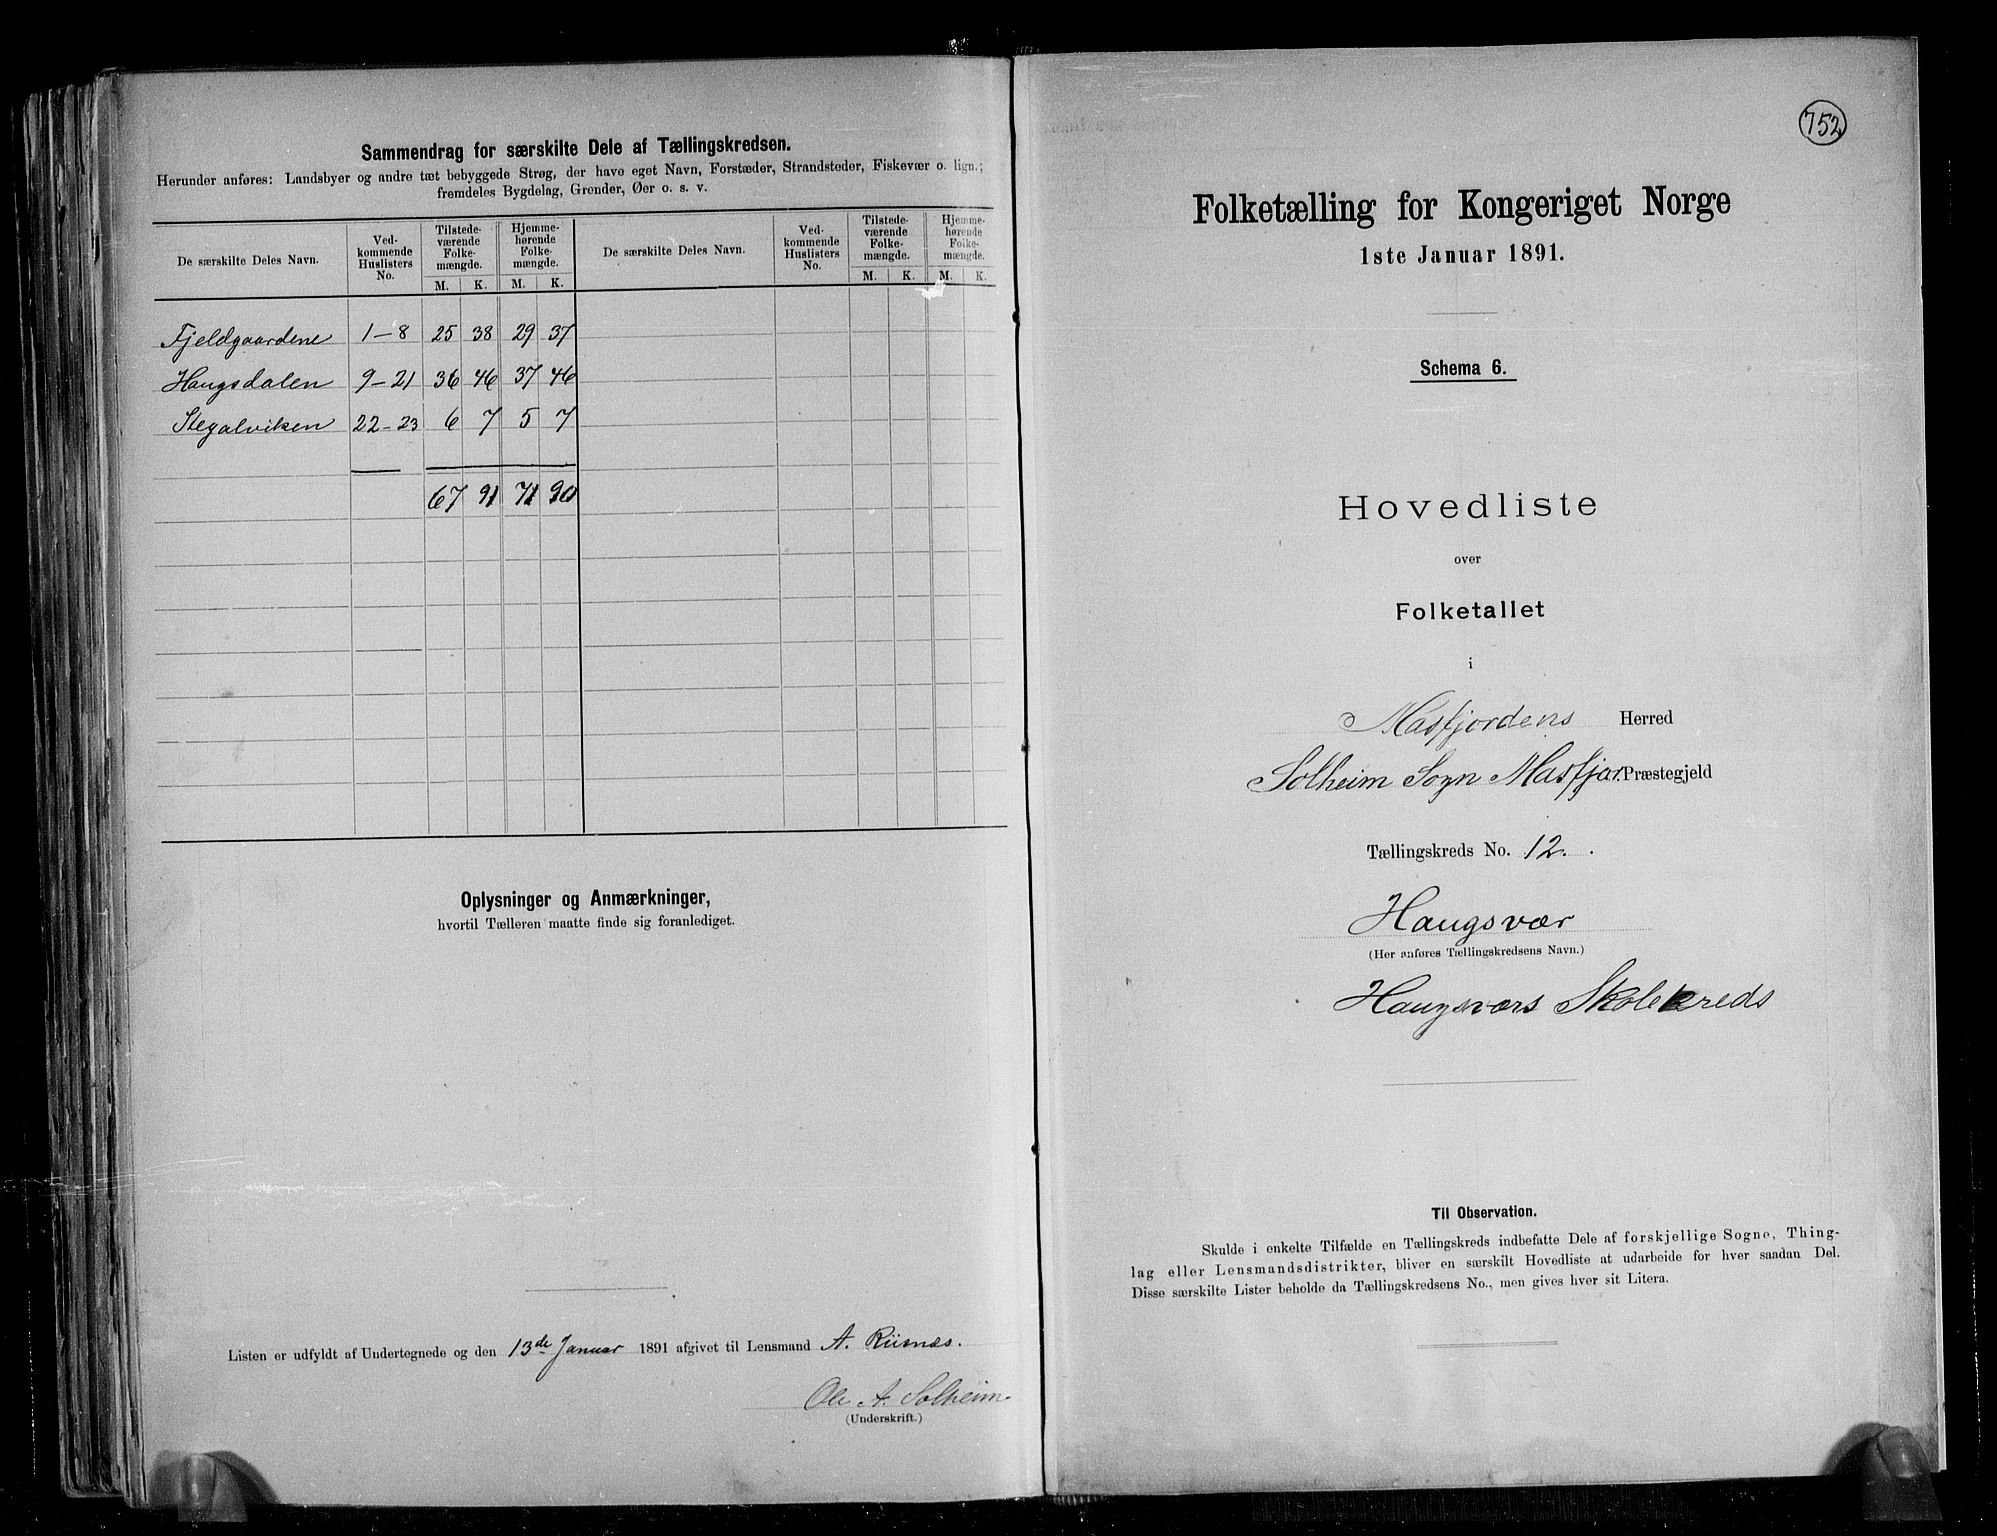 Sammendrag for særskilte Dele af Tællingskredsen.
Herunder anføres: Landsbyer og andre tæt bebyggede Strøg, der have eget Navn, Forstæder, Strandsteder, Fiskevær o. lign.;
fremdeles Bygdelag, Grender, Øer o. s. v.
De særskilte Deles Navn. Ved-kommende Huslisters No. Tilstede-værende Folke-mængde. Hjemme-hørende Folke-mængde. De særskilte Deles Navn. Ved-kommende Huslisters No. Tilstede-værende Folke-mængde. Hjemme-hørende Folke-mængde.
M. K. M. K. M. K. M. K.
Fjeldgaardene 1-8 25 38 29 37
Haugsdalen 9-21 36 46 37 46
Stegalviken 22-23 6 7 5 7
67 91 71 90
Oplysninger og Anmærkninger,
hvortil Tælleren maatte finde sig foranlediget.
Listen er udfyldt af Undertegnede og den 13de Januar 1891 afgivet til Lensmand A. Riisnæs.
Ole A. Solheim
(Underskrift.)
752
Folketælling for Kongeriget Norge
1ste Januar 1891.
Schema 6.
Hovedliste
over
Folketallet
i
Masfjordens Herred
Solheim Sogn Masfjor. Præstegjeld
Tællingskreds No. 12.
Haugsvær
(Her anføres Tællingskredsens Navn.)
Haugsværs Skolekreds
Til Observation.
Skulde i enkelte Tilfælde en Tællingskreds indbefatte Dele af forskjellige Sogne, Thing-
lag eller Lensmandsdistrikter, bliver en særskilt Hovedliste at udarbeide for hver saadan Del.
Disse særskilte Lister beholde da Tællingskredsens No., men gives hver sit Litera.